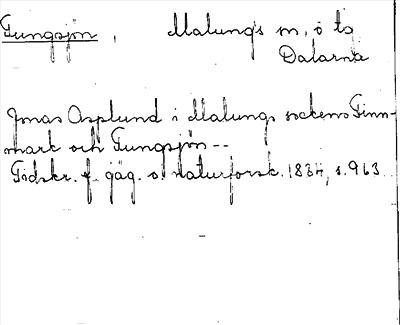 Tungsjön, Malungs sn, o tg
Dalarna
Jonas Asplund i Malungs sockens Finn-
mark och Tungsjön --
Tidskr. f. jäg. o. naturforsk. 1834, s. 963